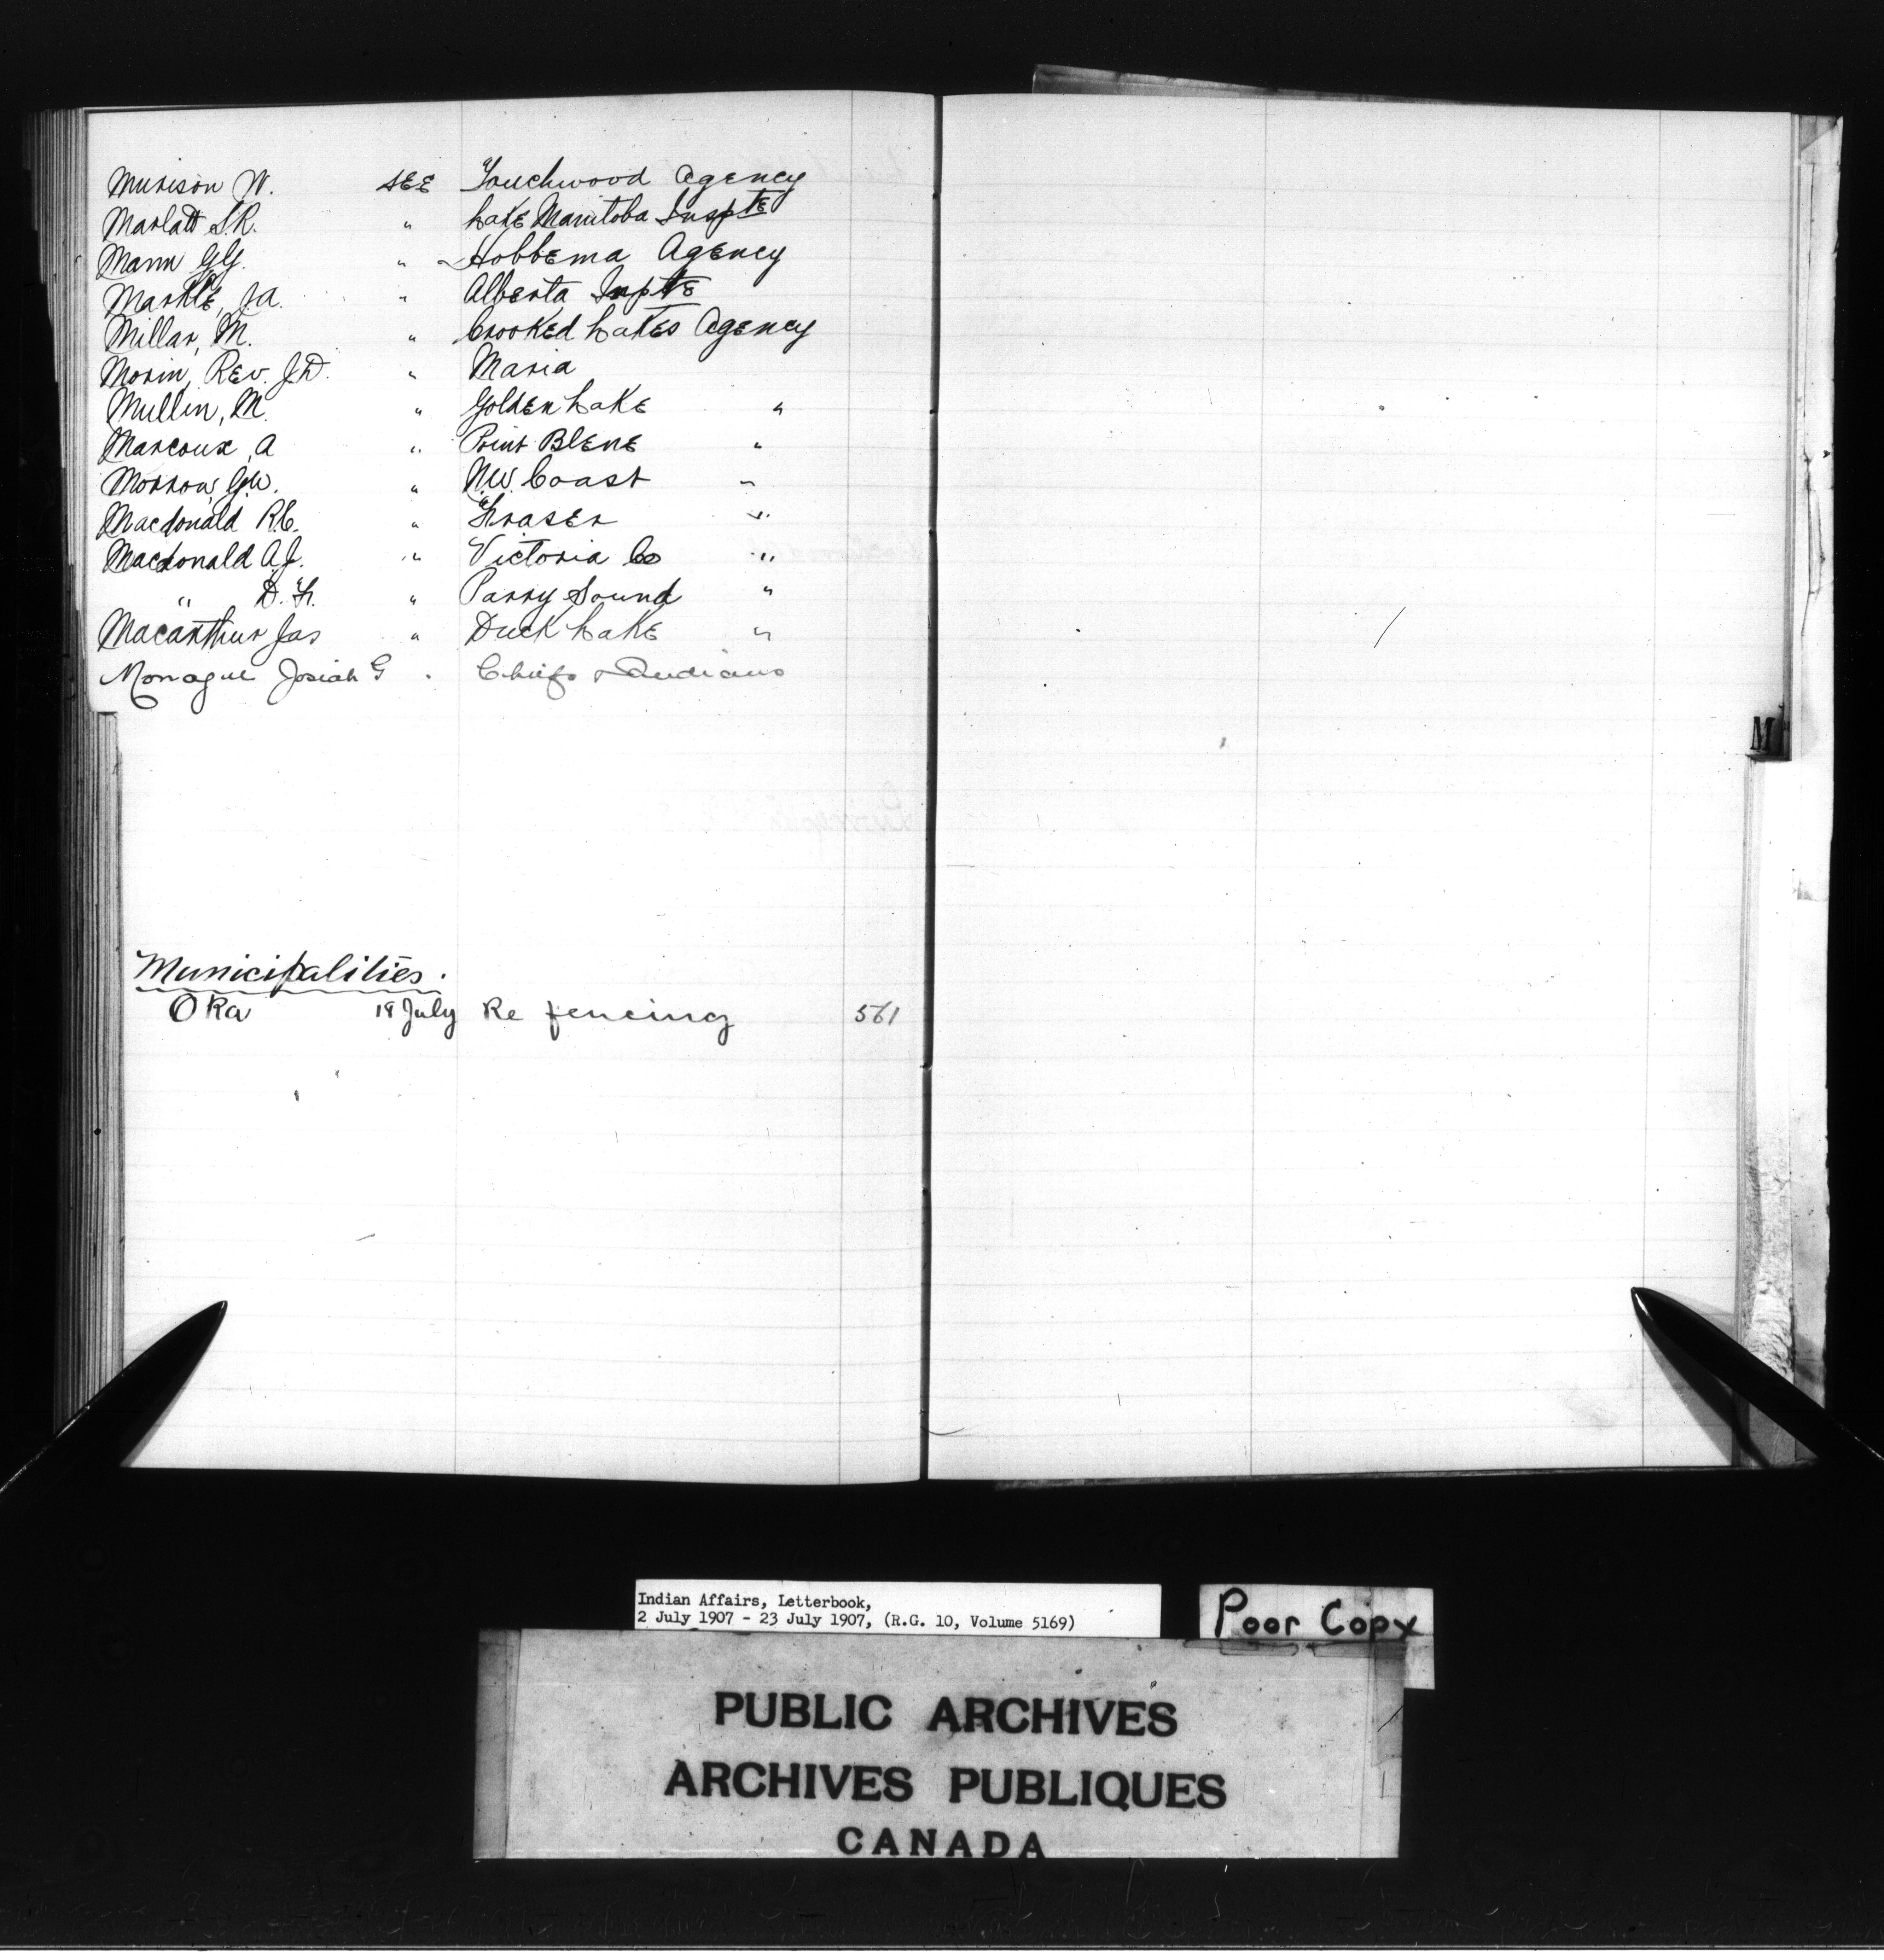 Murison W. SEE Touchwood Agency
Marlatt S.R. " Lake Manitoba Inspte
Mann G.G. " Hobbema Agency
Markle, J.A. " Alberta Inspte
Millar, M. " Crooked Lakes Agency
Morin, Rev. J.D. " Maria
Mullin, M. " Golden Lake "
Marcoux, A " Point Bleue "
Morrow, G.W. " N.W. Coast "
Macdonald R.C. " Fraser "
Macdonald A.J. " Victoria Co "
" D.F. " Parry Sound "
Macarthur Jas " Duck Lake "
Monague Josiah G " Chiefs & Indians
M
Municipalities.
Oka 18 July Re fencing 561
Indian Affairs, Letterbook,
2 July 1907 - 23 July 1907, (R.G. 10, Volume 5169)
Poor Copy
PUBLIC ARCHIVES
ARCHIVES PUBLIQUES
CANADA